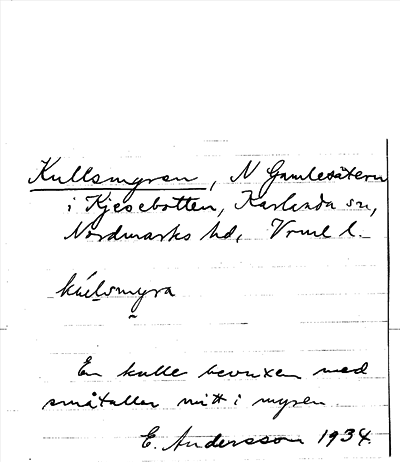 Kullsmyren, N Gamlesätern
i Kjesebotten, Karlanda sn,
Nordmarks hd, Vrml l.
kúlsmyra
En kulle bevuxen med
småtallar mitt i myren.
E. Andersson 1934.